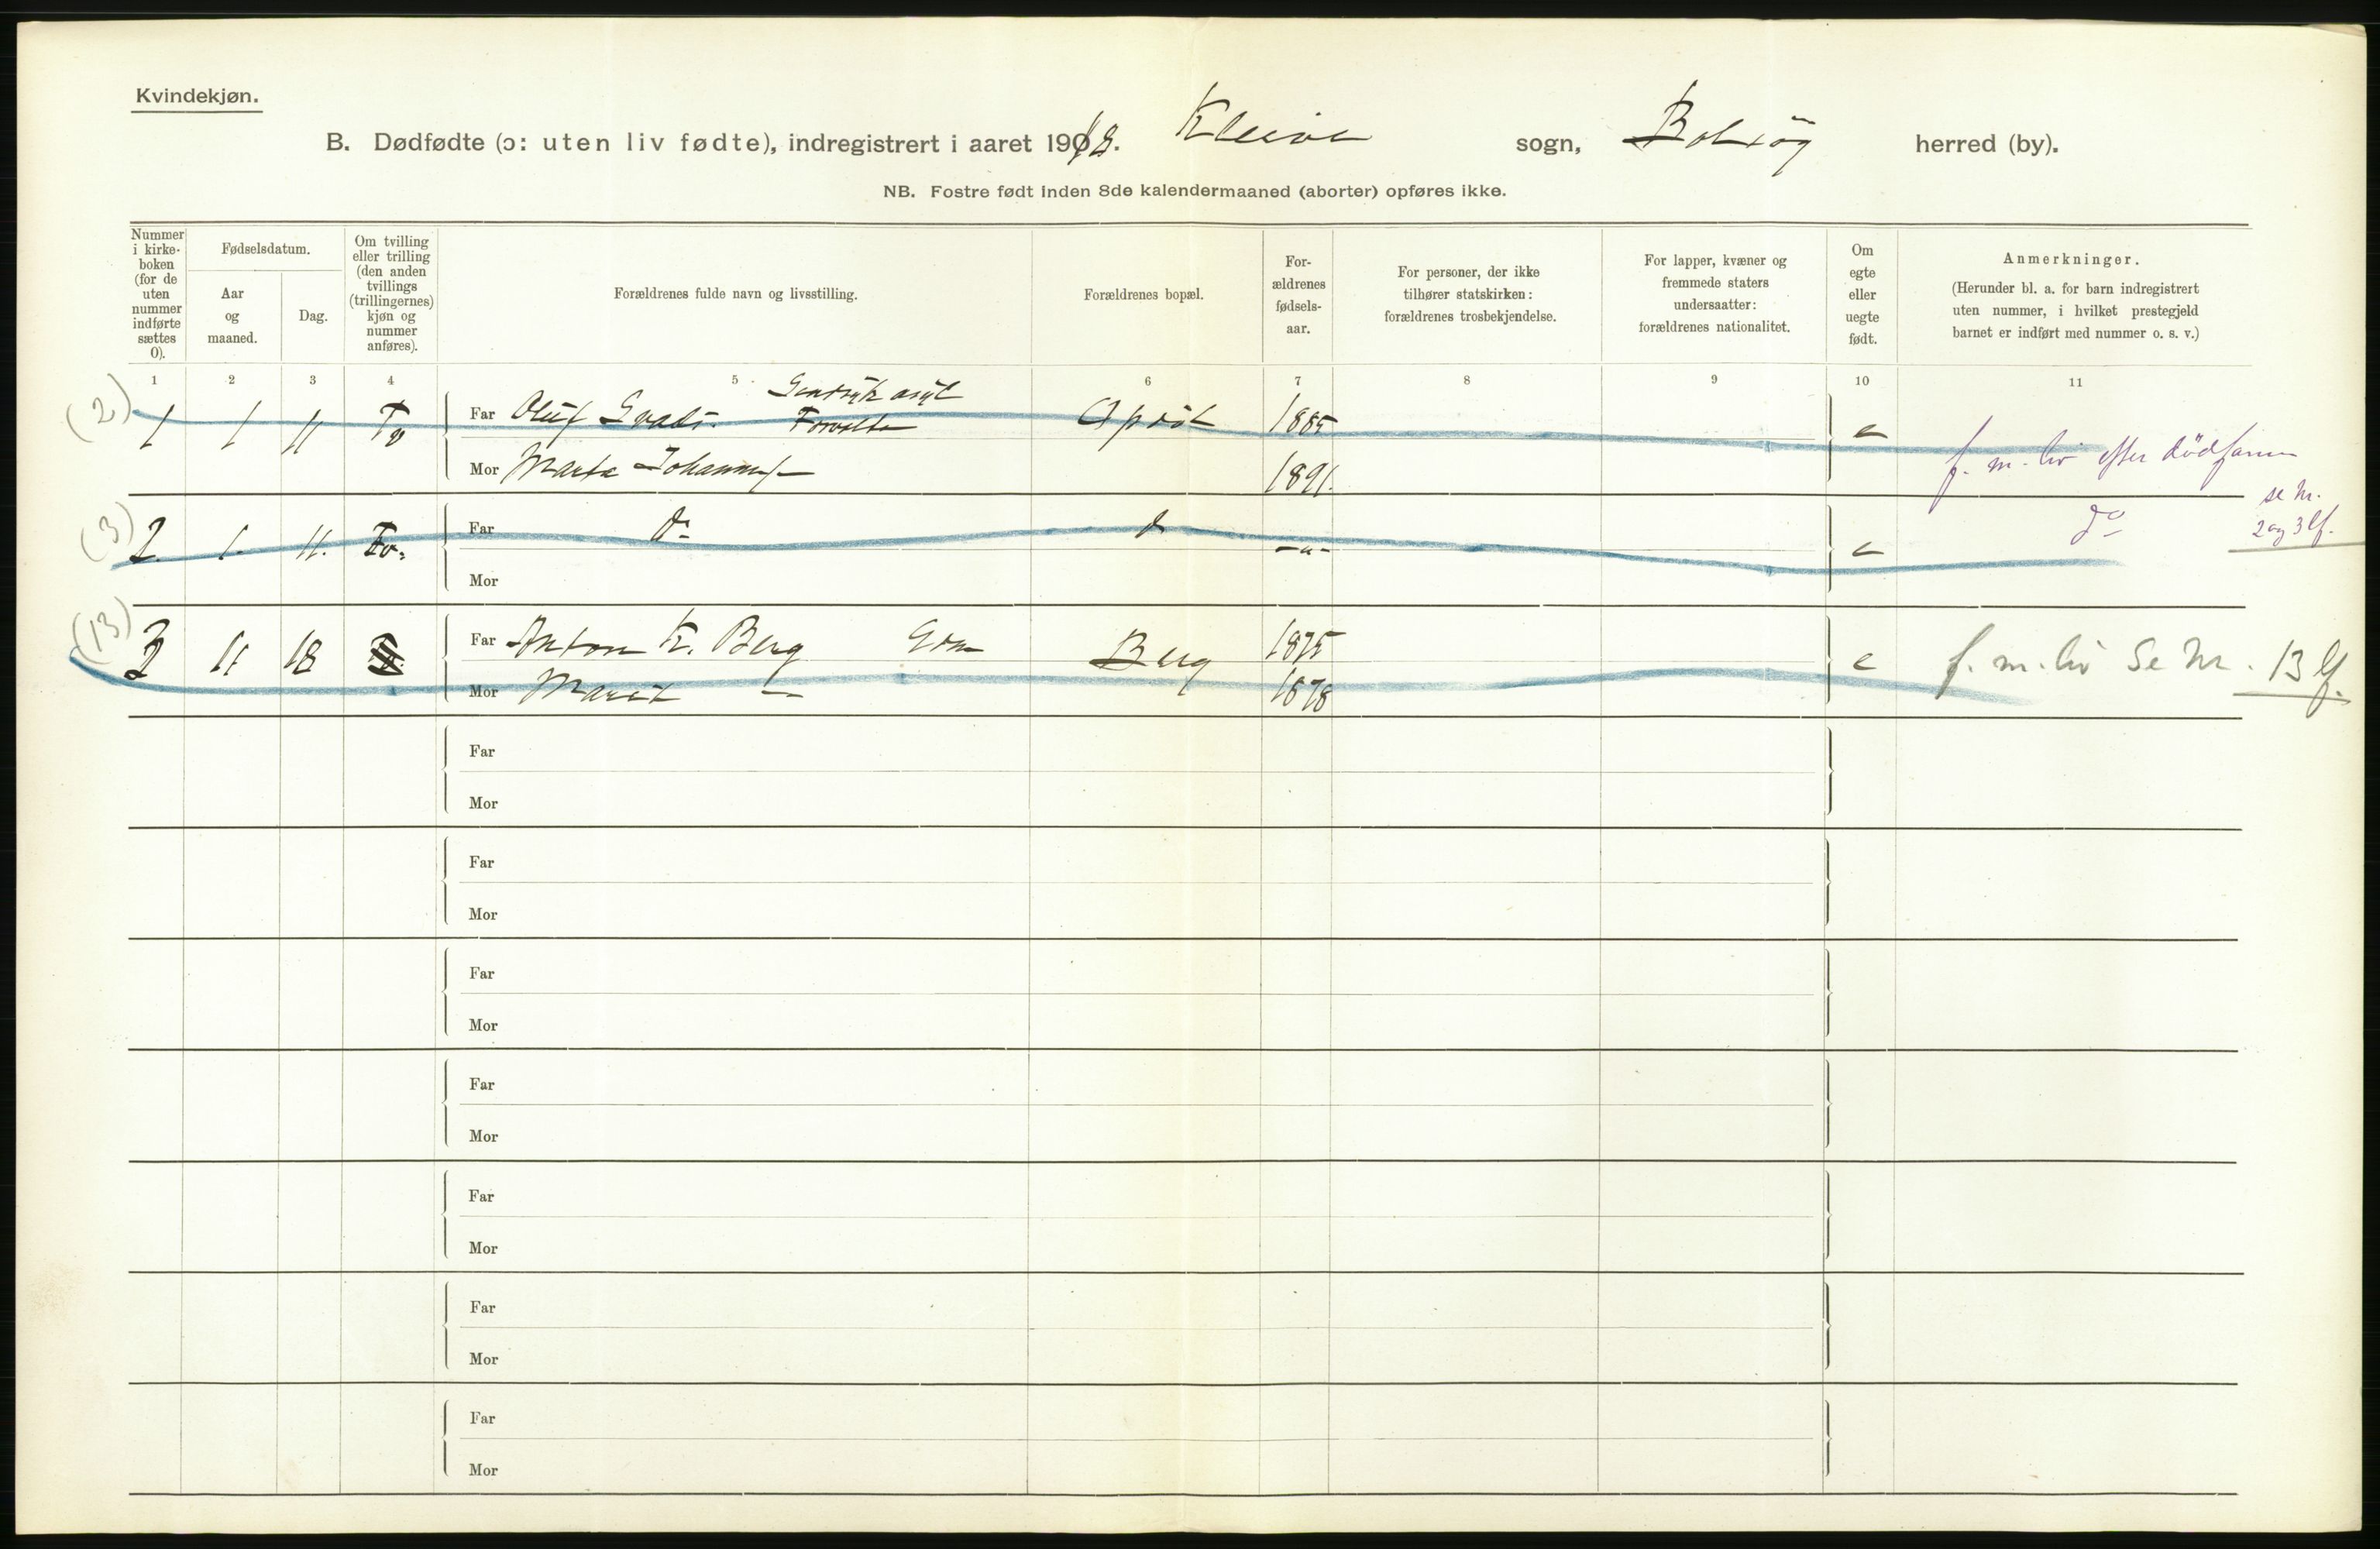 Kvindekjøn.
B. Dødfødte (ɔ: uten liv fødte), indregistrert i aaret 1912. Kleive sogn, Bolsøy herred (by).
NB. Fostre født inden 8de kalendermaaned (aborter) opføres ikke.
Nummer i kirke-boken (for de uten nummer indførte sættes 0).
Fødselsdatum.
Aar og maaned.
Dag.
Om tvilling eller trilling (den anden tvillings (trillingernes) kjøn og nummer anføres).
Forældrenes fulde navn og livsstilling.
Forældrenes bopæl.
For-ældrenes fødsels-aar.
For personer, der ikke tilhører statskirken: forældrenes trosbekjendelse.
For lapper, kvæner og fremmede staters undersaatter: forældrenes nationalitet.
Om egte eller uegte født.
Anmerkninger.
(Herunder bl. a. for barn indregistrert uten nummer, i hvilket prestegjeld barnet er indført med nummer o. s. v.)
1 2 3 4 5 6 7 8 9 10 11
(2) 1 1 11 Tv Far Oluf 1885 e
Mor Marta 1891. f. m. liv efter dødsfanm
(3) 2 1 11. Tv. Far do do -"- e do se Nr. 2 og 3 lf.
Mor
(13) 3 11 18 Far Anton K. Berg Gm Berg 1875 e f. m. liv Se Nr. 13 lf.
Mor Marit — 1878
Far
Mor
Far
Mor
Far
Mor
Far
Mor
Far
Mor
Far
Mor
Far
Mor